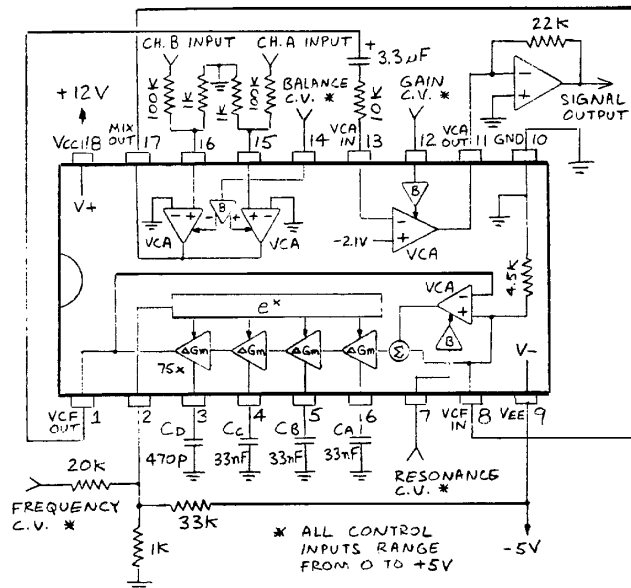 22K
CH. B INPUT
CH. A INPUT
+
3.3µF
100K
1K
1K
100K
BALANCE
C.V. *
10K
GAIN
C.V. *
-
+
SIGNAL
OUTPUT
+12V
VCC
18
MIX
OUT
17
16
15
14
VCA
IN
13
12
VCA
OUT
11
GND
10
V+
- +
- B +
+ -
VCA
VCA
B
-
+
-2.1V
VCA
4.5K
VCA
-
+
B
e^x
ΔGm
ΔGm
ΔGm
ΔGm
Σ
75x
V-
VCF
OUT
1
2
3
4
5
6
7
VCF
IN
8
VEE
9
CD
CC
CB
CA
470P
33nF
33nF
33nF
RESONANCE
C.V. *
20K
FREQUENCY
C.V. *
33K
1K
* ALL CONTROL
INPUTS RANGE
FROM 0 TO +5V
-5V